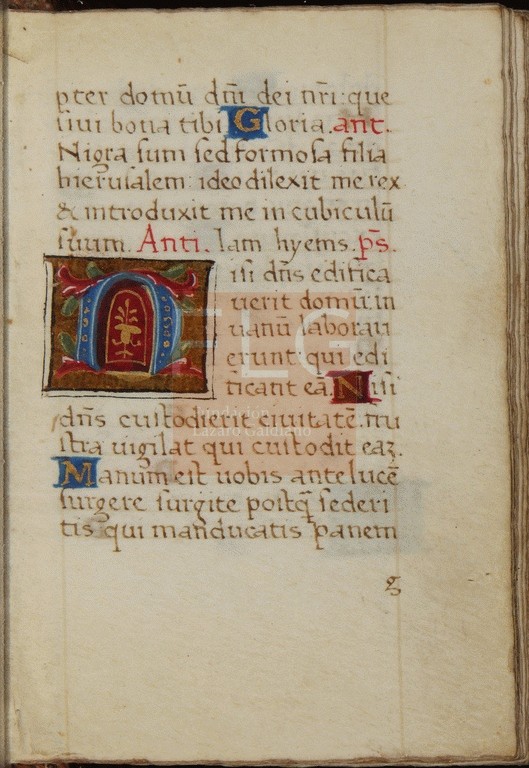 pter domū dn̄i dei nr̄i: que
siui bona tibi Gloria. ant.
Nigra sum sed formosa filia
hierusalem: ideo dilexit me rex
& introduxit me in cubiculū
suum. Anti. Iam hyems. ps.
Nisi dn̄s edifica
uerit domū: in
uanū laboraū
erunt: qui edi
ficant eā. Nisi
dn̄s custodierit ciuitatē: fru
stra uigilat qui custodit eaꝫ.
Manum est uobis ante lucē
surgere surgite postq̄ sederi
tis qui manducatis panem
g
FLG
Fundación
Lázaro Galdiano